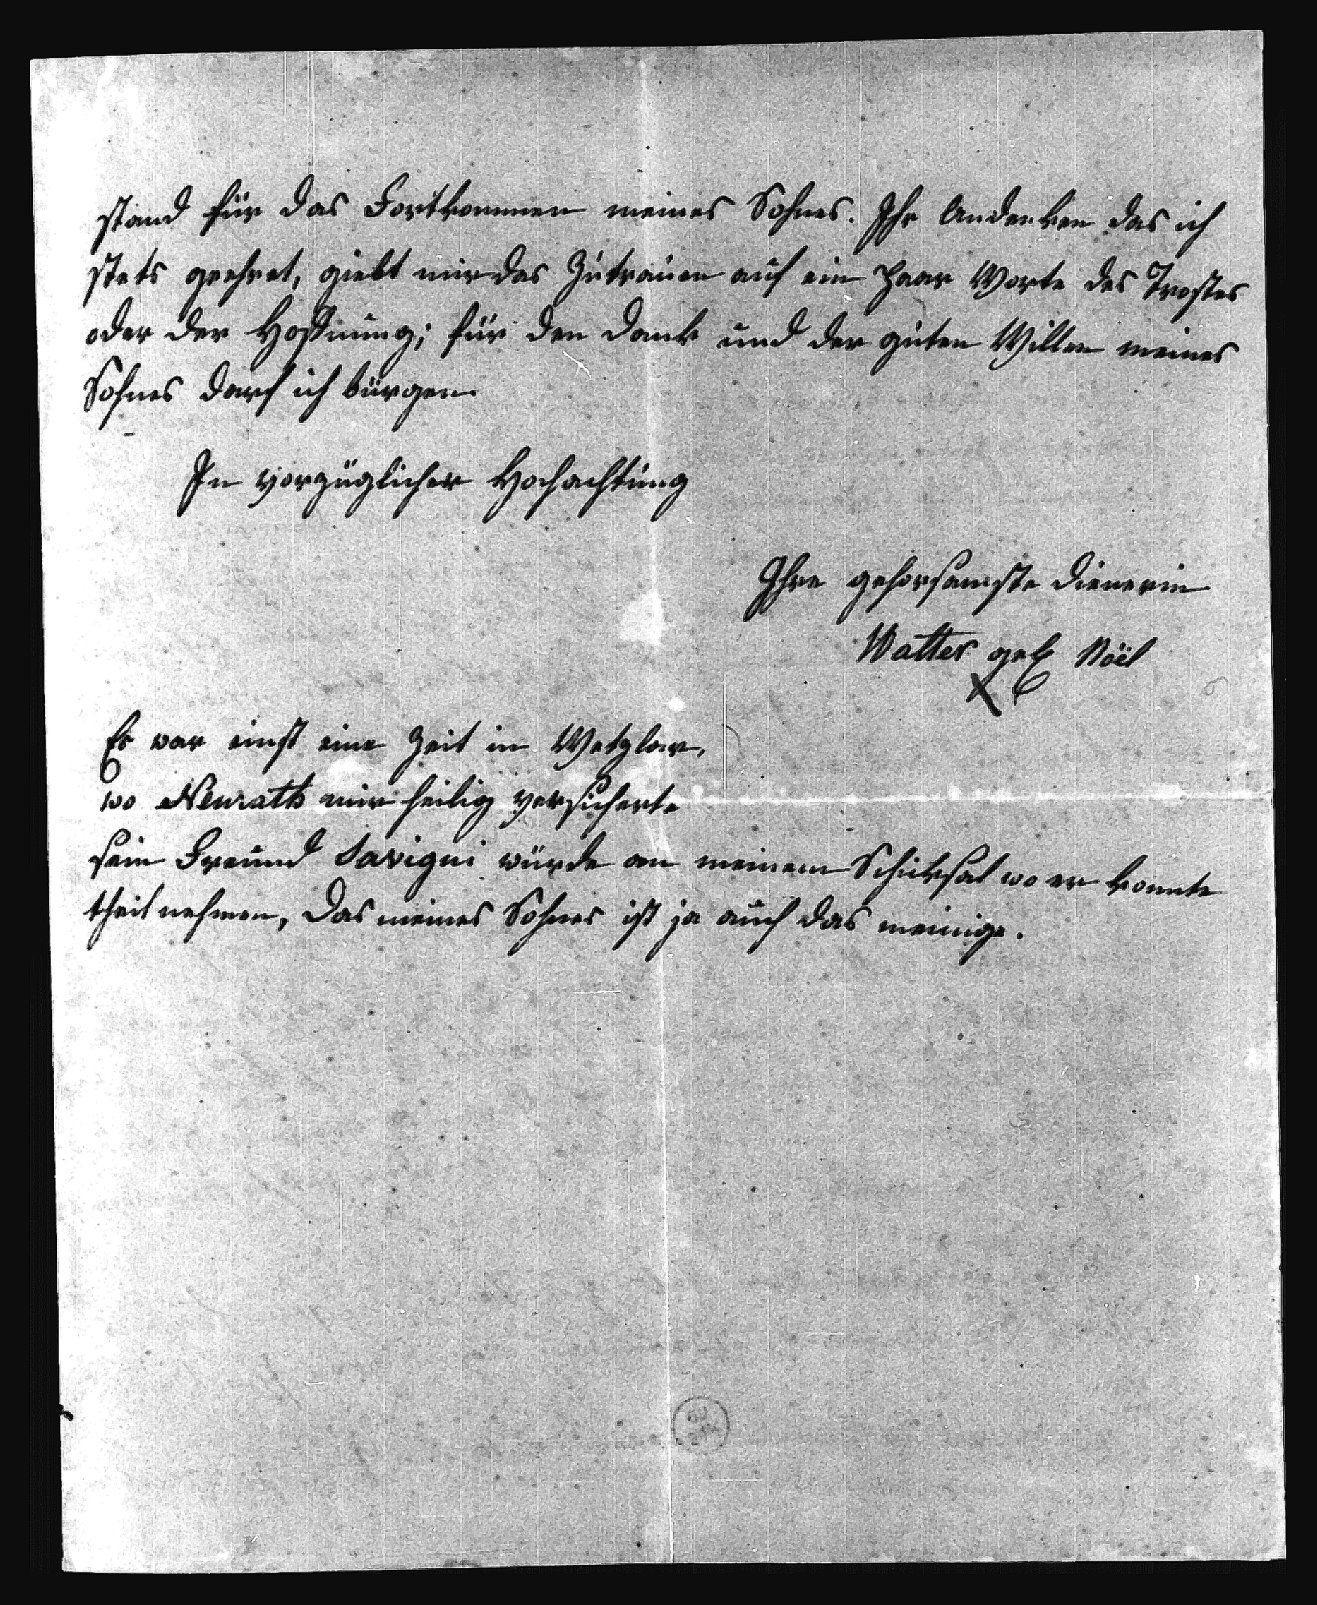 stand für das Fortkommen meines Sohnes. Ihr Andenken das ich
stets geehret, giebt mir das Zutrauen auf ein paar Worte des Trostes
oder der Hoffnung; für den Dank und der guten Willen meines
Sohnes darf ich bürgen.
In vorzüglicher Hochachtung
Ihre gehorsamste Dienerin
Watter geb Nöel
Es war einst eine Zeit in Wetzlar,
wo Neurath mir heilig versicherte
sein Freund Savigni würde an meinem Schicksal wo er konnte
theil nehmen, das meines Sohnes ist ja auch das meinige.